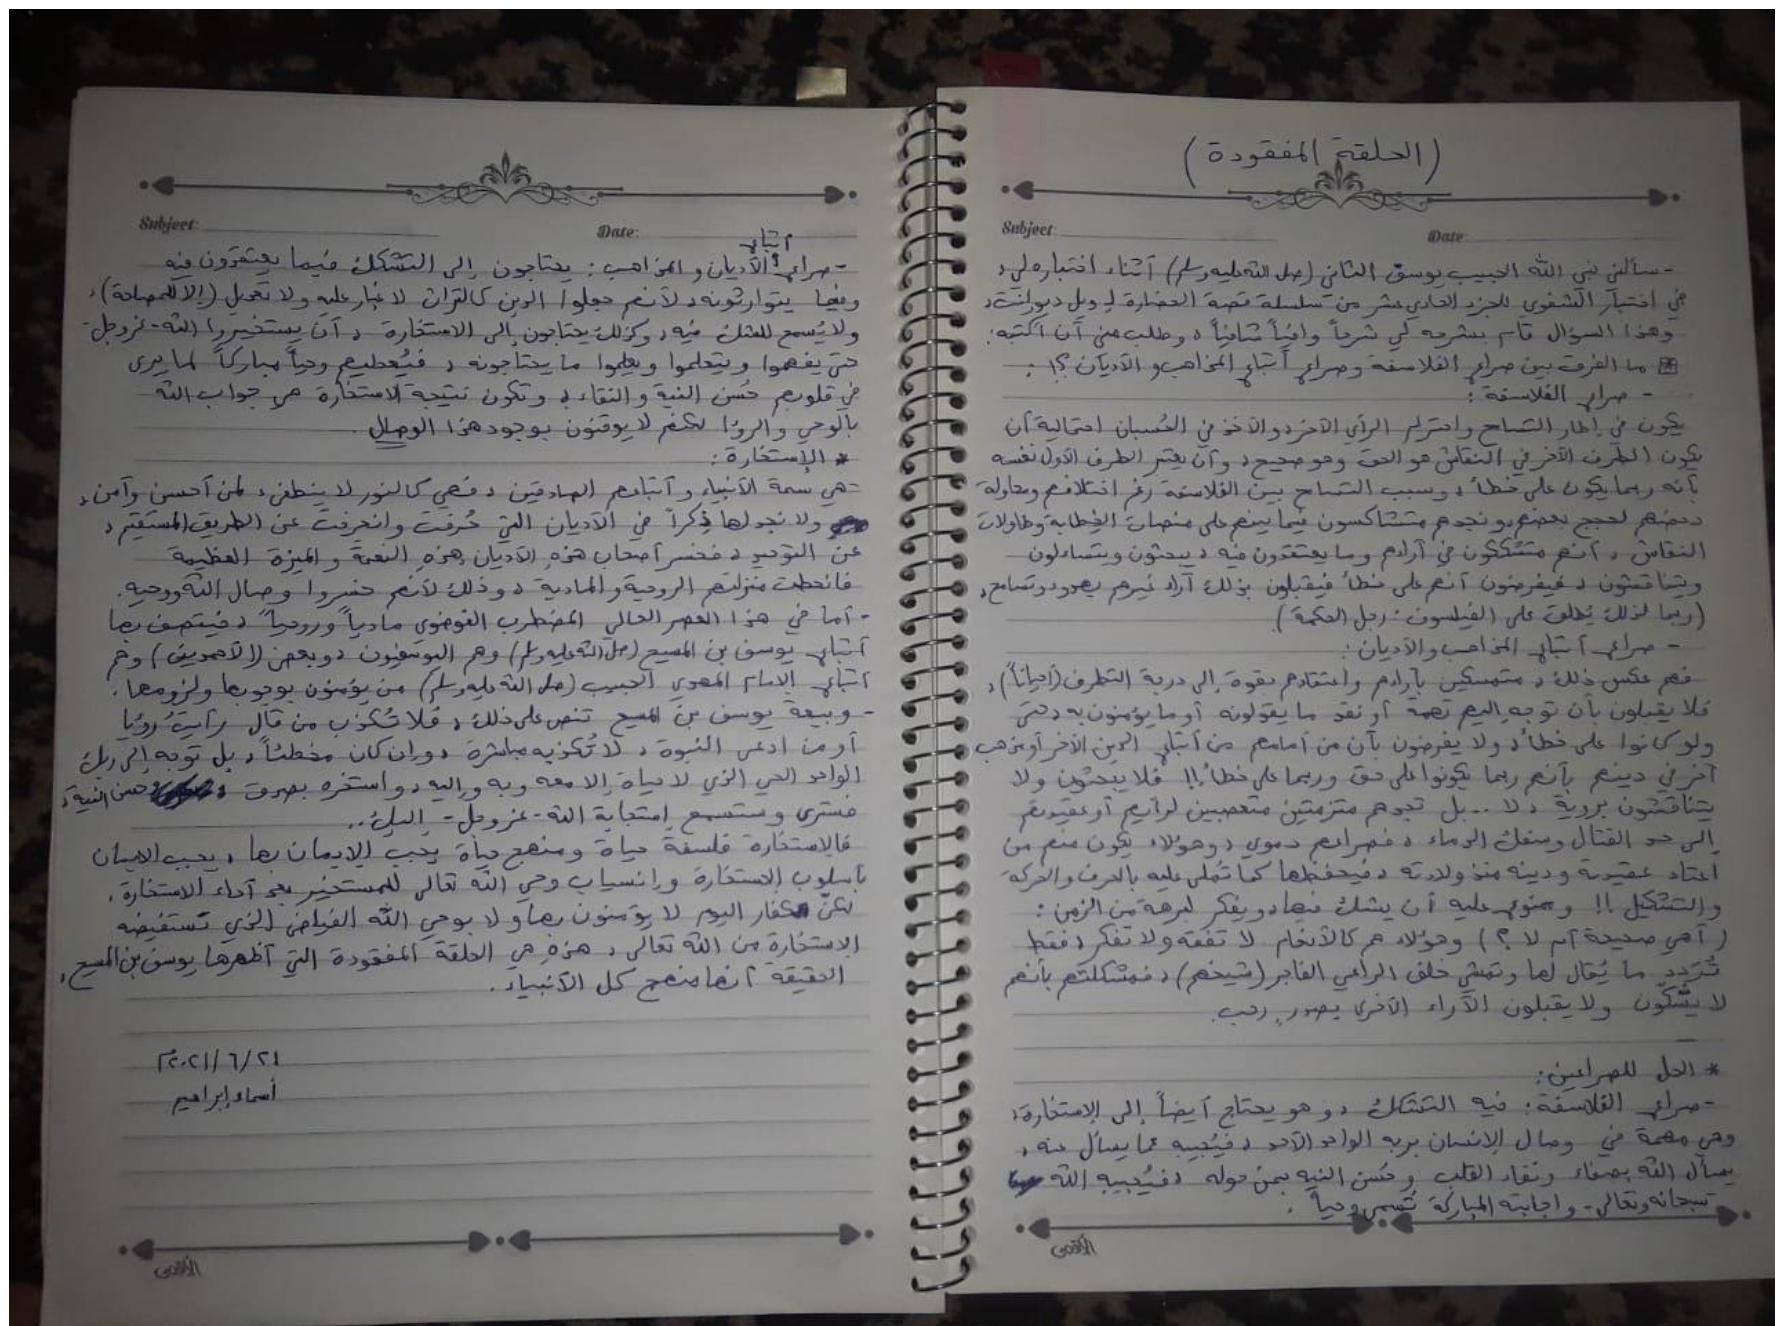 (الحلقة المفقودة)
Subject:
Date:
- سألني نبي الله الحبيب يوسف الثاني (صلى الله عليه وسلم) أثناء اختباره لي،
في اختبار الشفوي للجزء الحادي عشر من سلسلة قصة الحضارة لـ ويل ديورانت،
وهذا السؤال قام بشرحه لي شرحاً وافياً شافياً، وطلب مني أن أكتبه:
ما الفرق بين صراع الفلاسفة وصراع أتباع المذاهب والأديان؟! :
- صراع الفلاسفة :
يكون في إطار التسامح واحترام الرأي الآخر، والأخذ في الحُسبان احتمالية أن
يكون الطرف الآخر في النقاش هو الحق وهو صحيح، وأن يعتبر الطرف الأول نفسه
بأنه ربما يكون على خطأ، وسبب التسامح بين الفلاسفة رغم اختلافهم ومحاولة
دحضهم لحجج بعضهم، ونجدهم متشاكسون فيما بينهم على منصات الخطابة وطاولات
النقاش، أنهم متشككون في آراءهم وما يعتقدون فيه، يبحثون ويتساءلون
ويتناقشون، فيفرضون أنهم على خطأ فيقبلون بذلك آراء غيرهم بهدوء وتسامح،
(ربما لذلك يُطلق على الفيلسوف: رجل الحكمة).
- صراع أتباع المذاهب والأديان:
فهم عكس ذلك، متمسكين بآراءهم واعتقادهم بقوة إلى درجة التطرف (أحياناً)،
فلا يقبلون بأن توجه إليهم تهمة أو نقد ما يقولونه أو ما يؤمنون به، حتى
ولو كانوا على خطأ، ولا يفرضون بأن من أمامهم من أتباع الدين الآخر أو مذهب
آخر في دينهم بأنهم ربما يكونوا على حق وربما على خطأ!! فلا يبحثون ولا
يتناقشون بروية، لا.. بل تجدهم متزمتين متعصبين لرأيهم أو عقيدتهم
إلى حد القتال وسفك الدماء، فصراعهم دموي، وهؤلاء يكون منهم من
اعتاد عقيدته ودينه منذ ولادته، فيحفظها كما تُملى عليه بالحرف والحركة
والتشكيل!! وممنوع عليه أن يشك فيها، ويفكر لبرهة من الزمن:
(أهي صحيحة أم لا؟) وهؤلاء هم كالأنعام لا تفقه ولا تفكر، فقط
تُردد ما يُقال لها وتمشي خلف الراعي الفاجر (شيخهم)، فمشكلتهم بأنهم
لا يشكّون ولا يقبلون الآراء الأخرى بصدرٍ رحب.
* الحل للصراعين:
- صراع الفلاسفة: فيه التشكك، وهو يحتاج أيضاً إلى الإستخارة،
وهي مهمة في وصال الإنسان بربه الواحد الأحد، فيُجيبه عما يسأل عنه،
يسأل الله بصفاء ونقاء القلب وحُسن النية بمن حوله، فيُجيبه الله
- سبحانه وتعالى - وإجابته المباركة تُسمى وحياً.
الأقصى
Subject:
Date:
أتباع
- صراع الأديان والمذاهب: يحتاجون إلى التشكك فيما يعتقدون فيه
وفيما يتوارثونه، لأنهم جعلوا الدين كالتراث لا غبار عليه ولا تعديل (إلا للمصلحة)،
ولا يُسمح للشك فيه، وكذلك يحتاجون إلى الاستخارة، أن يستخيروا الله - عز وجل -
حتى يفهموا ويتعلموا ويعلموا ما يحتاجونه، فيُعطيهم وحياً مباركاً لما يرى
في قلوبهم حُسن النية والنقاء، وتكون نتيجة الاستخارة هي جواب الله
بالوحي والرؤا لكنهم لا يوقنون بوجود هذا الوصال.
* الإستخارة:
- هي سمة الأنبياء وأتباعهم الصادقين، فهي كالنور لا ينطفئ، لمن أحسن وآمن،
ولا نجد لها ذِكراً في الأديان التي حُرفت وانحرفت عن الطريق المستقيم،
عن التوحيد، فخسر أصحاب هذه الأديان هذه النعمة والميزة العظيمة
فانحطت منزلتهم الروحية والمادية، وذلك لأنهم خسروا وصال الله ووحيه.
- أما في هذا العصر الحالي المضطرب الفوضوي مادياً وروحياً، فيتصف بها
أتباع يوسف بن المسيح (صلى الله عليه وسلم) وهم اليوسفيون، وبعض (الأحمديين) وهم
أتباع الإمام المهدي الحبيب (صلى الله عليه وسلم) من يؤمنون بوجوبها ولزومها.
- وبيعة يوسف بن المسيح تنص على ذلك، فلا تُكذب من قال رأيتُ رؤيا
أو من ادعى النبوة، لا تُكذبه مباشرة، وإن كان مخطئاً، بل توجه إلى ربك
الواحد الحي الذي لا حياة إلا معه وبه وإليه، واستخره بصدق، وحسن النية،
فسترى وستسمع إستجابة الله - عز وجل - إليك..
فالاستخارة فلسفة حياة ومنهج حياة يجب الإيمان بها، يجب الإيمان
بأسلوب الإستخارة وإنسياب وحي الله تعالى للمستخير بعد أداء الاستخارة،
لكنّ كفار اليوم لا يؤمنون بها ولا بوحي الله الفياض الذي تستفيضه
الإستخارة من الله تعالى، هذه هي الحلقة المفقودة التي أظهرها يوسف بن المسيح،
الحقيقة أنها منهج كل الأنبياء.
٢٠٢١/٦/٢١م
أسماء إبراهيم
الأقصى